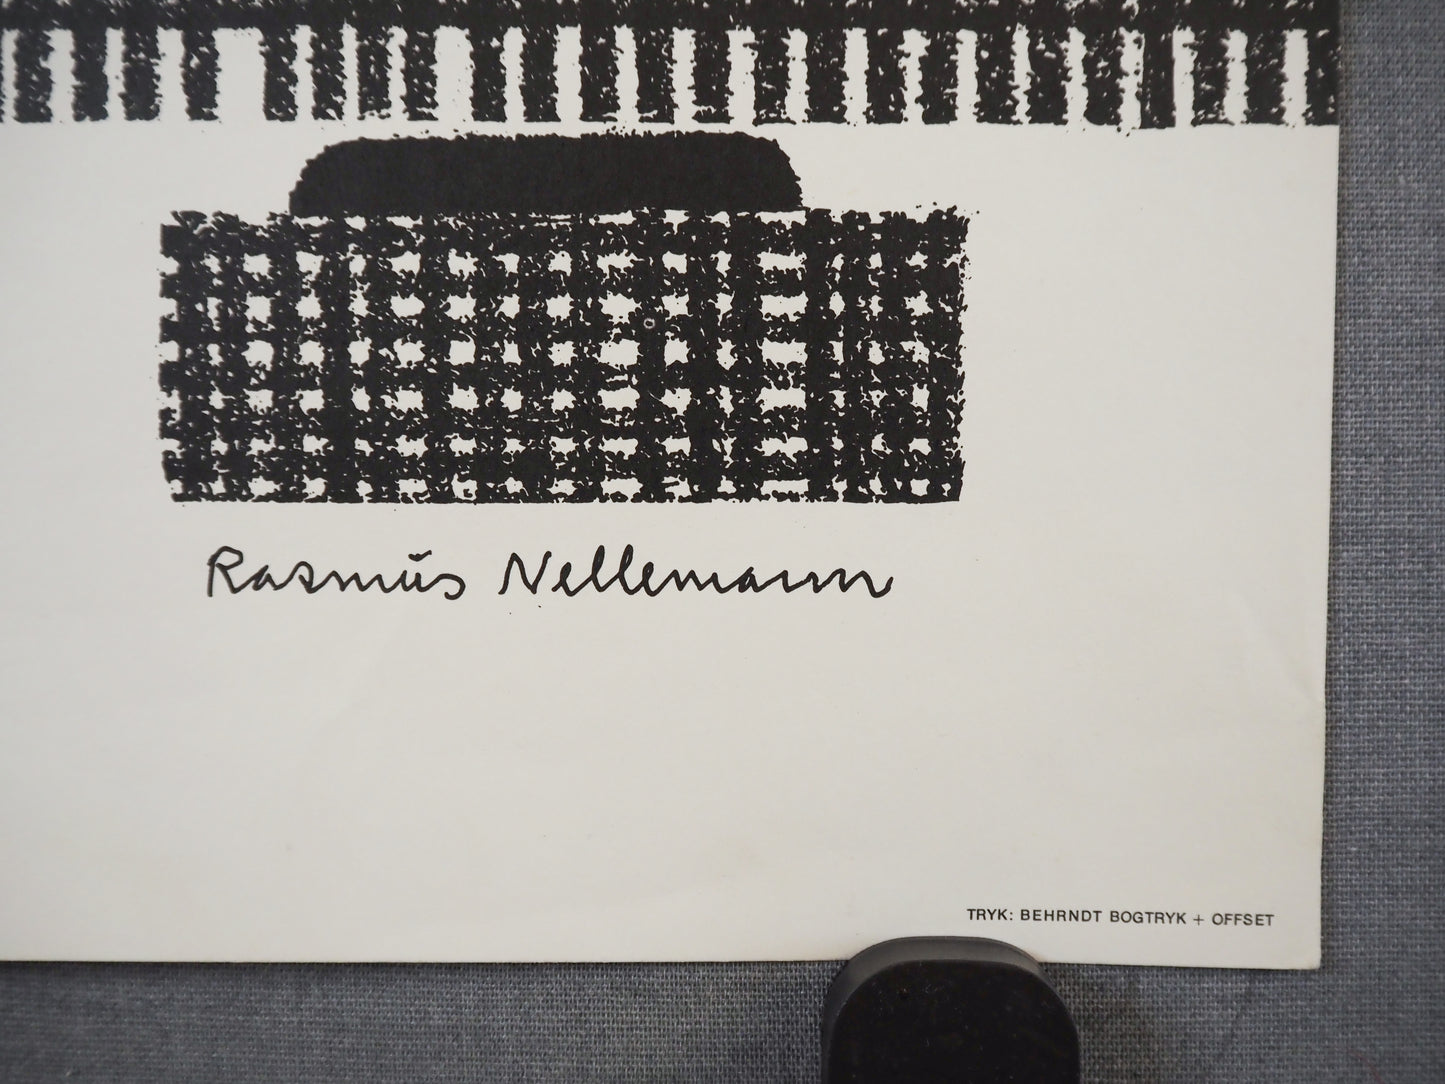 Rasmus Nellemann
TRYK: BEHRNDT BOGTRYK + OFFSET